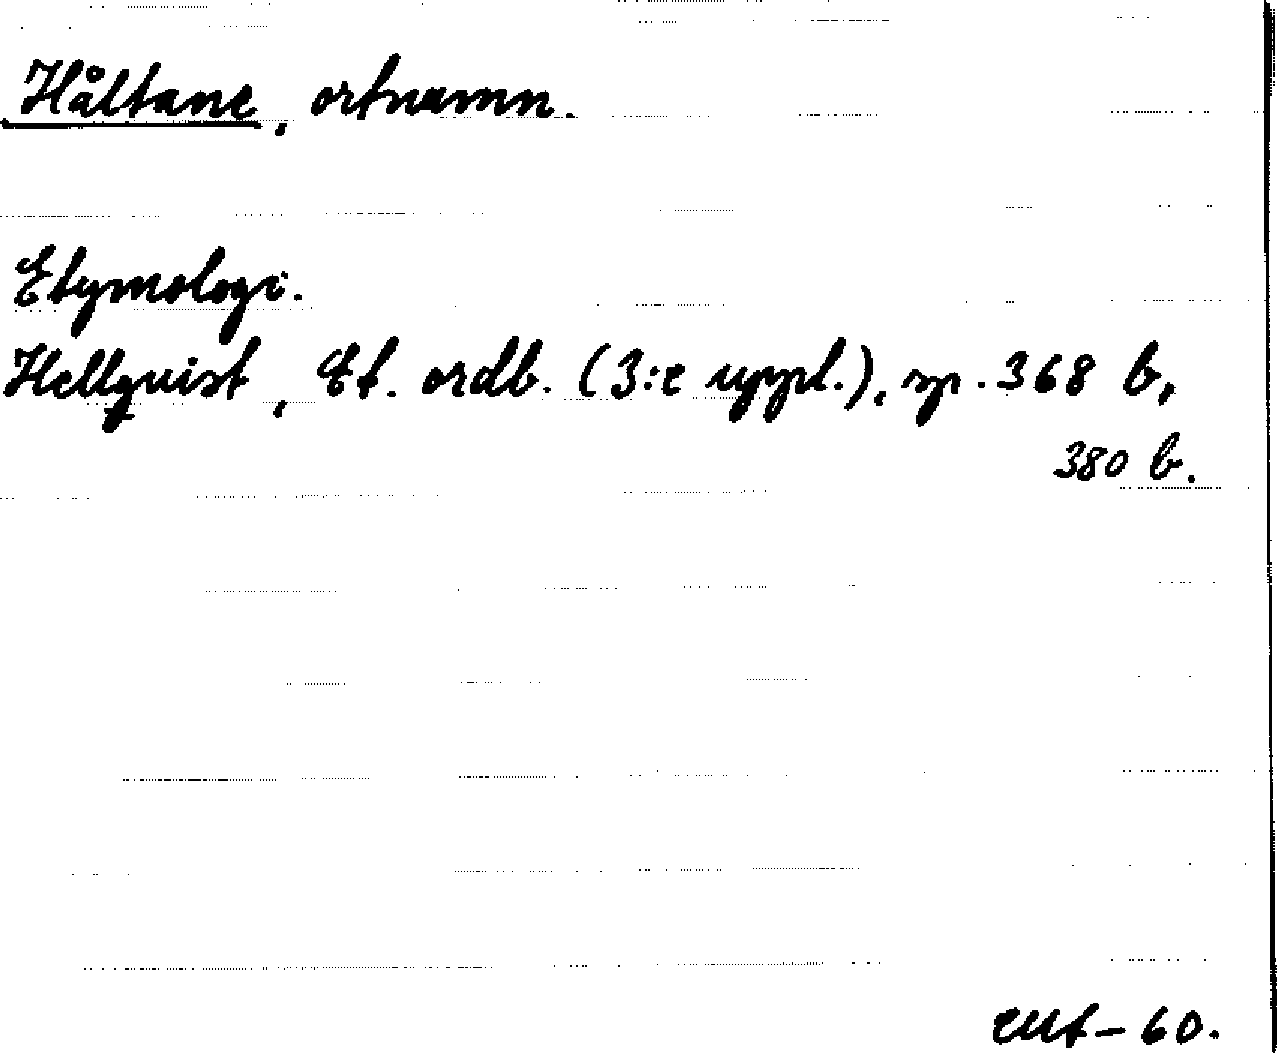 Håltane, ortnamn.
Etymologi.
Hellquist, Et. ordb. (3:e uppl.), sp. 368 b,
380 b.
60.